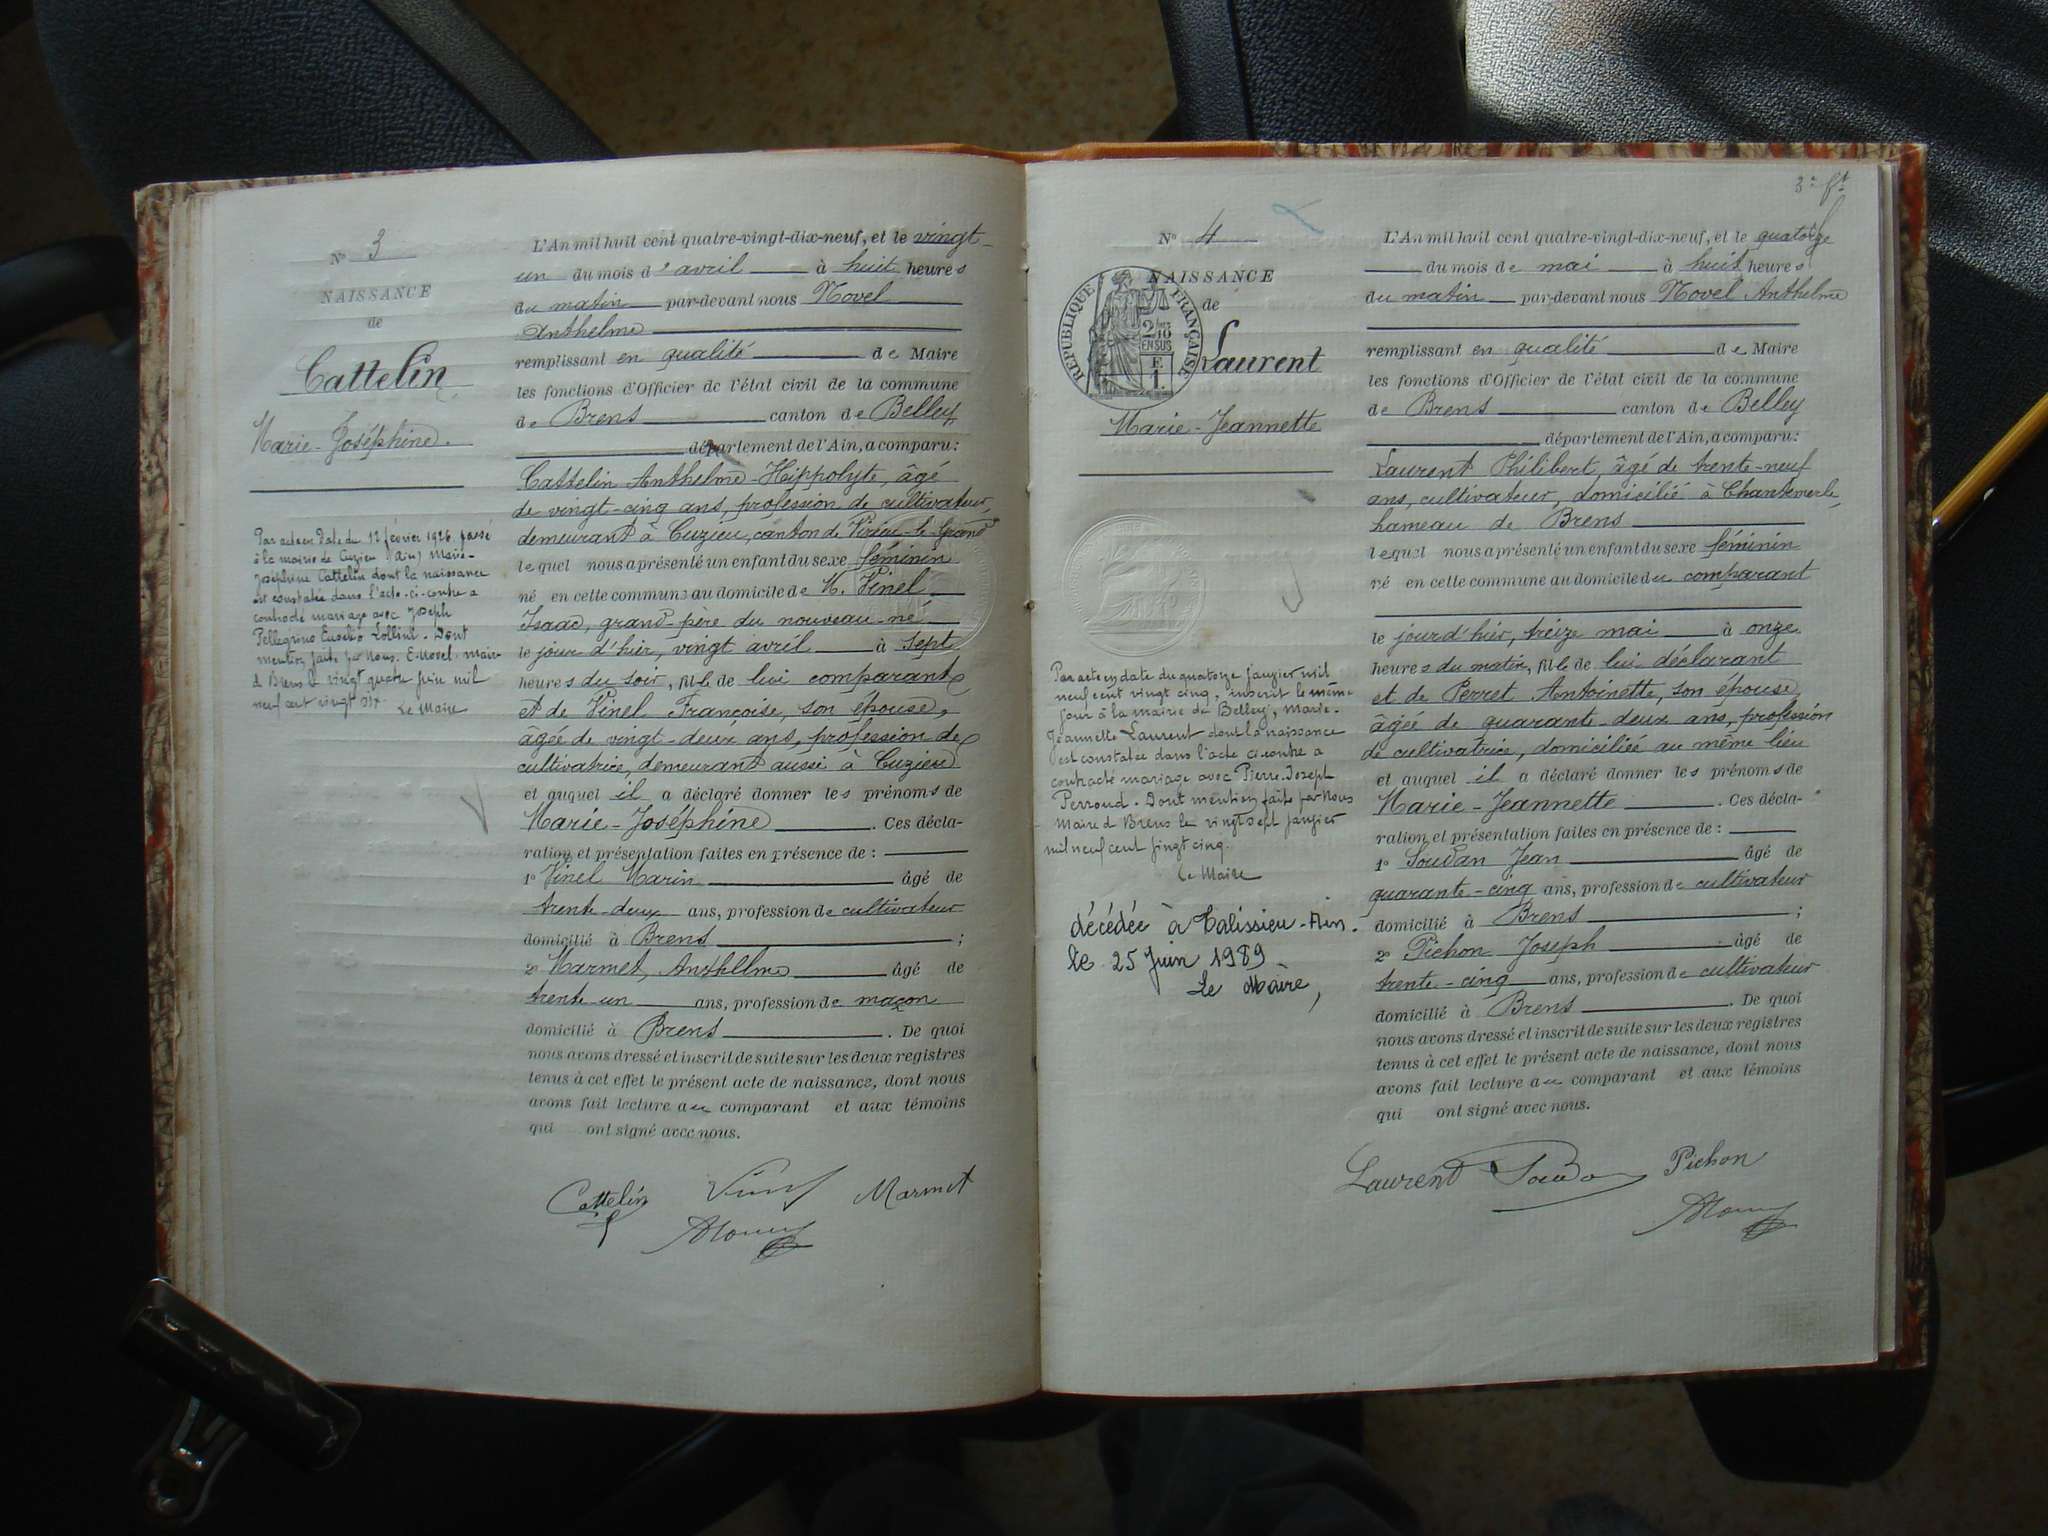 N° 3
NAISSANCE
de
Cattelin
Marie-Joséphine.
Par acte en date du 12 février 1926 passé
à la mairie de Cuzieu (Ain) Marie-
Joséphine Cattelin dont la naissance
est constatée dans l'acte ci-contre a
contracté mariage avec Joseph
Pellegrino Eusebio Lollini. Dont
mention faite par Nous. E. Novel. maire
de Brens le vingt quatre juin mil
neuf cent vingt six.
Le Maire
L'An mil huit cent quatre-vingt-dix-neuf, et le vingt-
un du mois d'avril à huit heures
du matin par-devant nous Novel
Anthelme
remplissant en qualité de Maire
les fonctions d'Officier de l'état civil de la commune
de Brens canton de Belley
département de l'Ain, a comparu:
Cattelin Anthelme-Hippolyte, âgé
de vingt-cinq ans, profession de cultivateur,
demeurant à Cuzieu, canton de Virieu-le-Grand
lequel nous a présenté un enfant du sexe féminin
né en cette commune au domicile de M. Vinel
Isaac, grand père du nouveau-né
le jour d'hier, vingt avril à sept
heures du soir, fille de lui comparant
et de Vinel Françoise, son épouse,
âgée de vingt-deux ans, profession de
cultivatrice, demeurant aussi à Cuzieu
et auquel il a déclaré donner les prénoms de
Marie-Joséphine. Ces décla-
ration et présentation faites en présence de :
1° Vinel Marin âgé de
trente-deux ans, profession de cultivateur
domicilié à Brens ;
2° Marmet, Anthelme âgé de
trente-un ans, profession de maçon
domicilié à Brens. De quoi
nous avons dressé et inscrit de suite sur les deux registres
tenus à cet effet le présent acte de naissance, dont nous
avons fait lecture au comparant et aux témoins
qui ont signé avec nous.
Cattelin Vinel Marmet
Novel
3e ft
N° 4
NAISSANCE
de
RÉPUBLIQUE FRANÇAISE
2/10 EN SUS
Laurent
Marie-Jeannette
Par acte en date du quatorze janvier mil
neuf cent vingt cinq, inscrit le même
jour à la mairie de Belley, Marie-
Jeannette Laurent dont la naissance
est constatée dans l'acte ci contre a
contracté mariage avec Pierre-Joseph
Perroud. Dont mention faite par Nous
Maire d Brens le vingt sept janvier
mil neuf cent vingt cinq.
Le Maire
décédée à Talissieu-Ain.
le 25 Juin 1989
Le Maire,
L'An mil huit cent quatre-vingt-dix-neuf, et le quatorze
du mois de mai à huit heures
du matin par-devant nous Novel Anthelme
remplissant en qualité de Maire
les fonctions d'Officier de l'état civil de la commune
de Brens canton de Belley
département de l'Ain, a comparu:
Laurent Philibert, âgé de trente-neuf
ans, cultivateur, domicilié à Chantemerle,
hameau de Brens
lequel nous a présenté un enfant du sexe féminin
né en cette commune au domicile du comparant
le jour d'hier, treize mai à onze
heures du matin, fille de lui déclarant
et de Perret Antoinette, son épouse,
âgée de quarante-deux ans, profession
de cultivatrice, domiciliée au même lieu
et auquel il a déclaré donner les prénoms de
Marie-Jeannette. Ces décla-
ration et présentation faites en présence de :
1° Soudan Jean âgé de
quarante-cinq ans, profession de cultivateur
domicilié à Brens ;
2° Pichon Joseph âgé de
trente-cinq ans, profession de cultivateur
domicilié à Brens. De quoi
nous avons dressé et inscrit de suite sur les deux registres
tenus à cet effet le présent acte de naissance, dont nous
avons fait lecture au comparant et aux témoins
qui ont signé avec nous.
Laurent Pichon
Novel